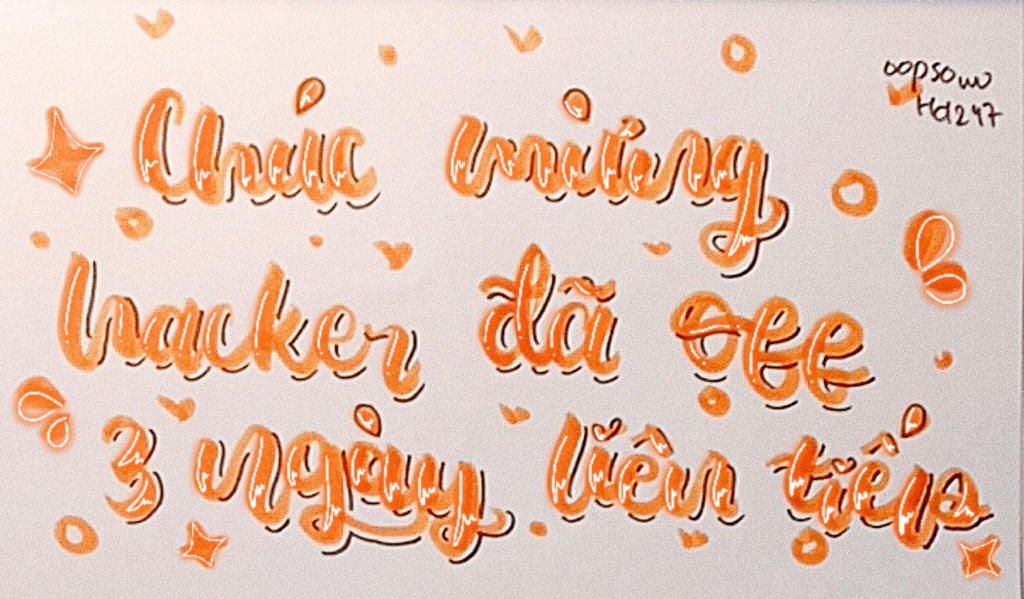 oopsowo
Hd247
Chúc mừng
hacker đã off
3 ngày liên tiếp